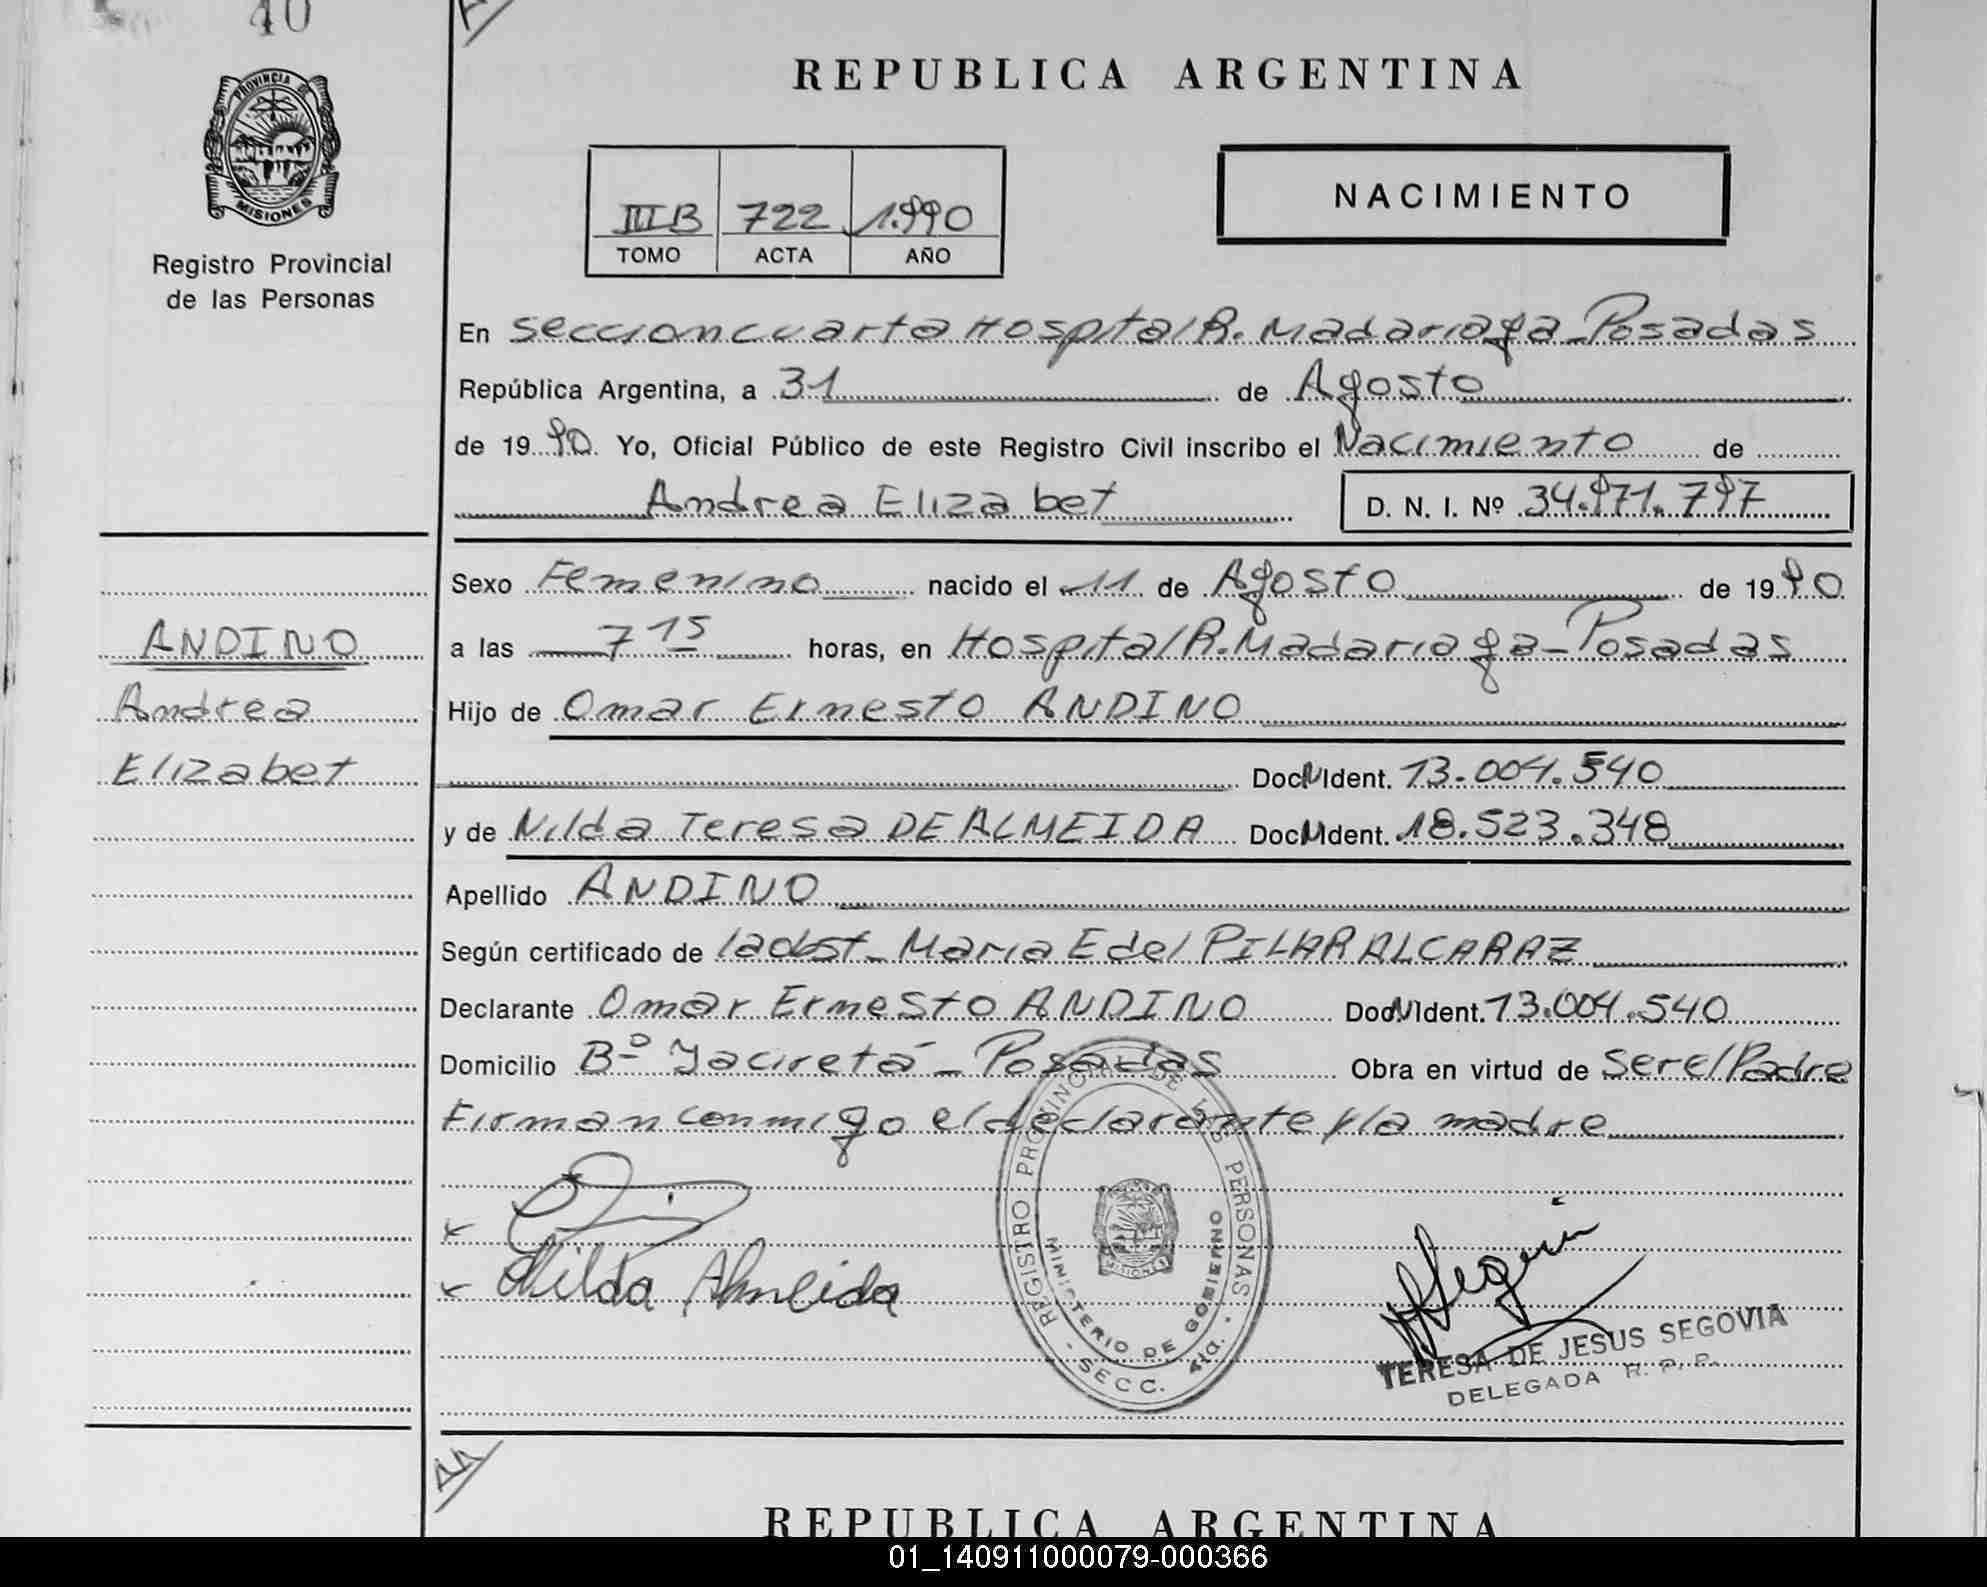 40
REPUBLICA ARGENTINA
PROVINCIA DE
MISIONES
Registro Provincial
de las Personas
III B 722 1.990
TOMO ACTA AÑO
NACIMIENTO
En Seccion cuarta Hospital R. Madariaga - Posadas
República Argentina, a 31 de Agosto
de 1990 Yo, Oficial Público de este Registro Civil inscribo el Nacimiento de
Andrea Elizabet D. N. I. Nº 34.971.797
Sexo Femenino nacido el 11 de Agosto de 1990
a las 7 15 horas, en Hospital R. Madariaga - Posadas
Hijo de Omar Ernesto ANDINO
Doc N Ident. 13.004.540
y de Nilda Teresa DE ALMEIDA Doc N Ident. 18.523.348
Apellido ANDINO
Según certificado de la obst. María Edel PILAR ALCARAZ
Declarante Omar Ernesto ANDINO Doc N Ident. 13.004.540
Domicilio Bº Yacireta - Posadas Obra en virtud de Ser el Padre
Firman conmigo el declarante y la madre
ANDINO
Andrea
Elizabet
Nilda Almeida
REGISTRO PROVINCIAL DE LAS PERSONAS
MINISTERIO DE GOBIERNO
MISIONES
- SECC. 4ta. -
TERESA DE JESUS SEGOVIA
DELEGADA R. P. P.
REPUBLICA ARGENTINA
01_140911000079-000366